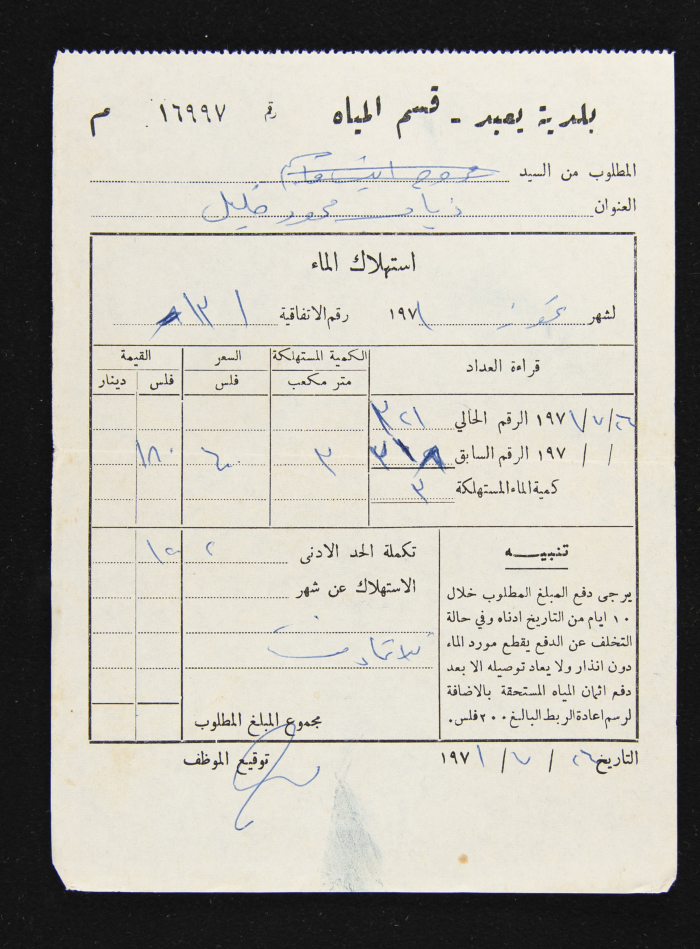 بلدية يعبد - قسم المياه
رقم ١٦٩٩٧ م
المطلوب من السيد
العنوان محمود خليل
استهلاك الماء
لشهر تموز ١٩٧١ رقم الاتفاقية ١٣١
قراءة العداد الكمية المستهلكة السعر القيمة
متر مكعب فلس فلس دينار
٢٦/٧/١٩٧١ الرقم الحالي ٣٢١
/ / ١٩٧ الرقم السابق ٣١٨ ٣ ٦٠ ١٨٠
كمية الماء المستهلكة ٣
تنبيه
يرجى دفع المبلغ المطلوب خلال
١٠ ايام من التاريخ ادناه وفي حالة
التخلف عن الدفع يقطع مورد الماء
دون انذار ولا يعاد توصيله الا بعد
دفع اثمان المياه المستحقة بالاضافة
لرسم اعادة الربط البالغ ٢٠٠ فلس.
تكملة الحد الادنى ٢
الاستهلاك عن شهر
مجموع المبلغ المطلوب
التاريخ ٢٦ / ٧ / ١٩٧١
توقيع الموظف